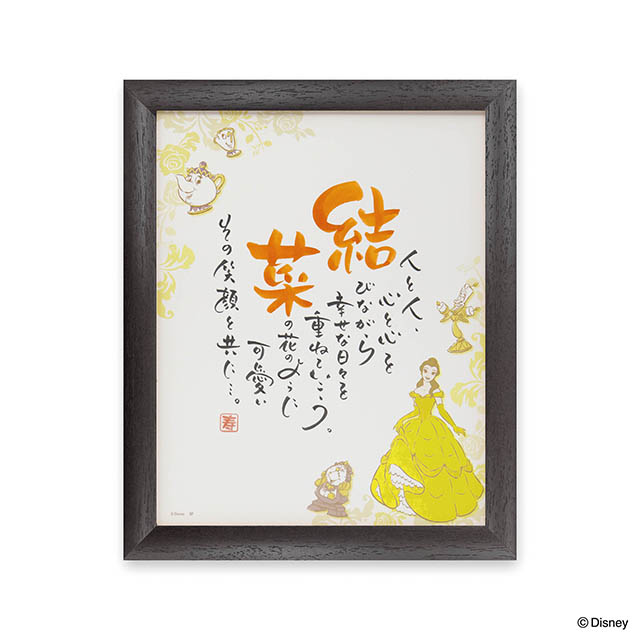 人と人、
心と心を
結びながら
幸せな日々を
重ねていこう。
菜の花のように
可愛い
その笑顔と共に…。
寿
© Disney
© Disney